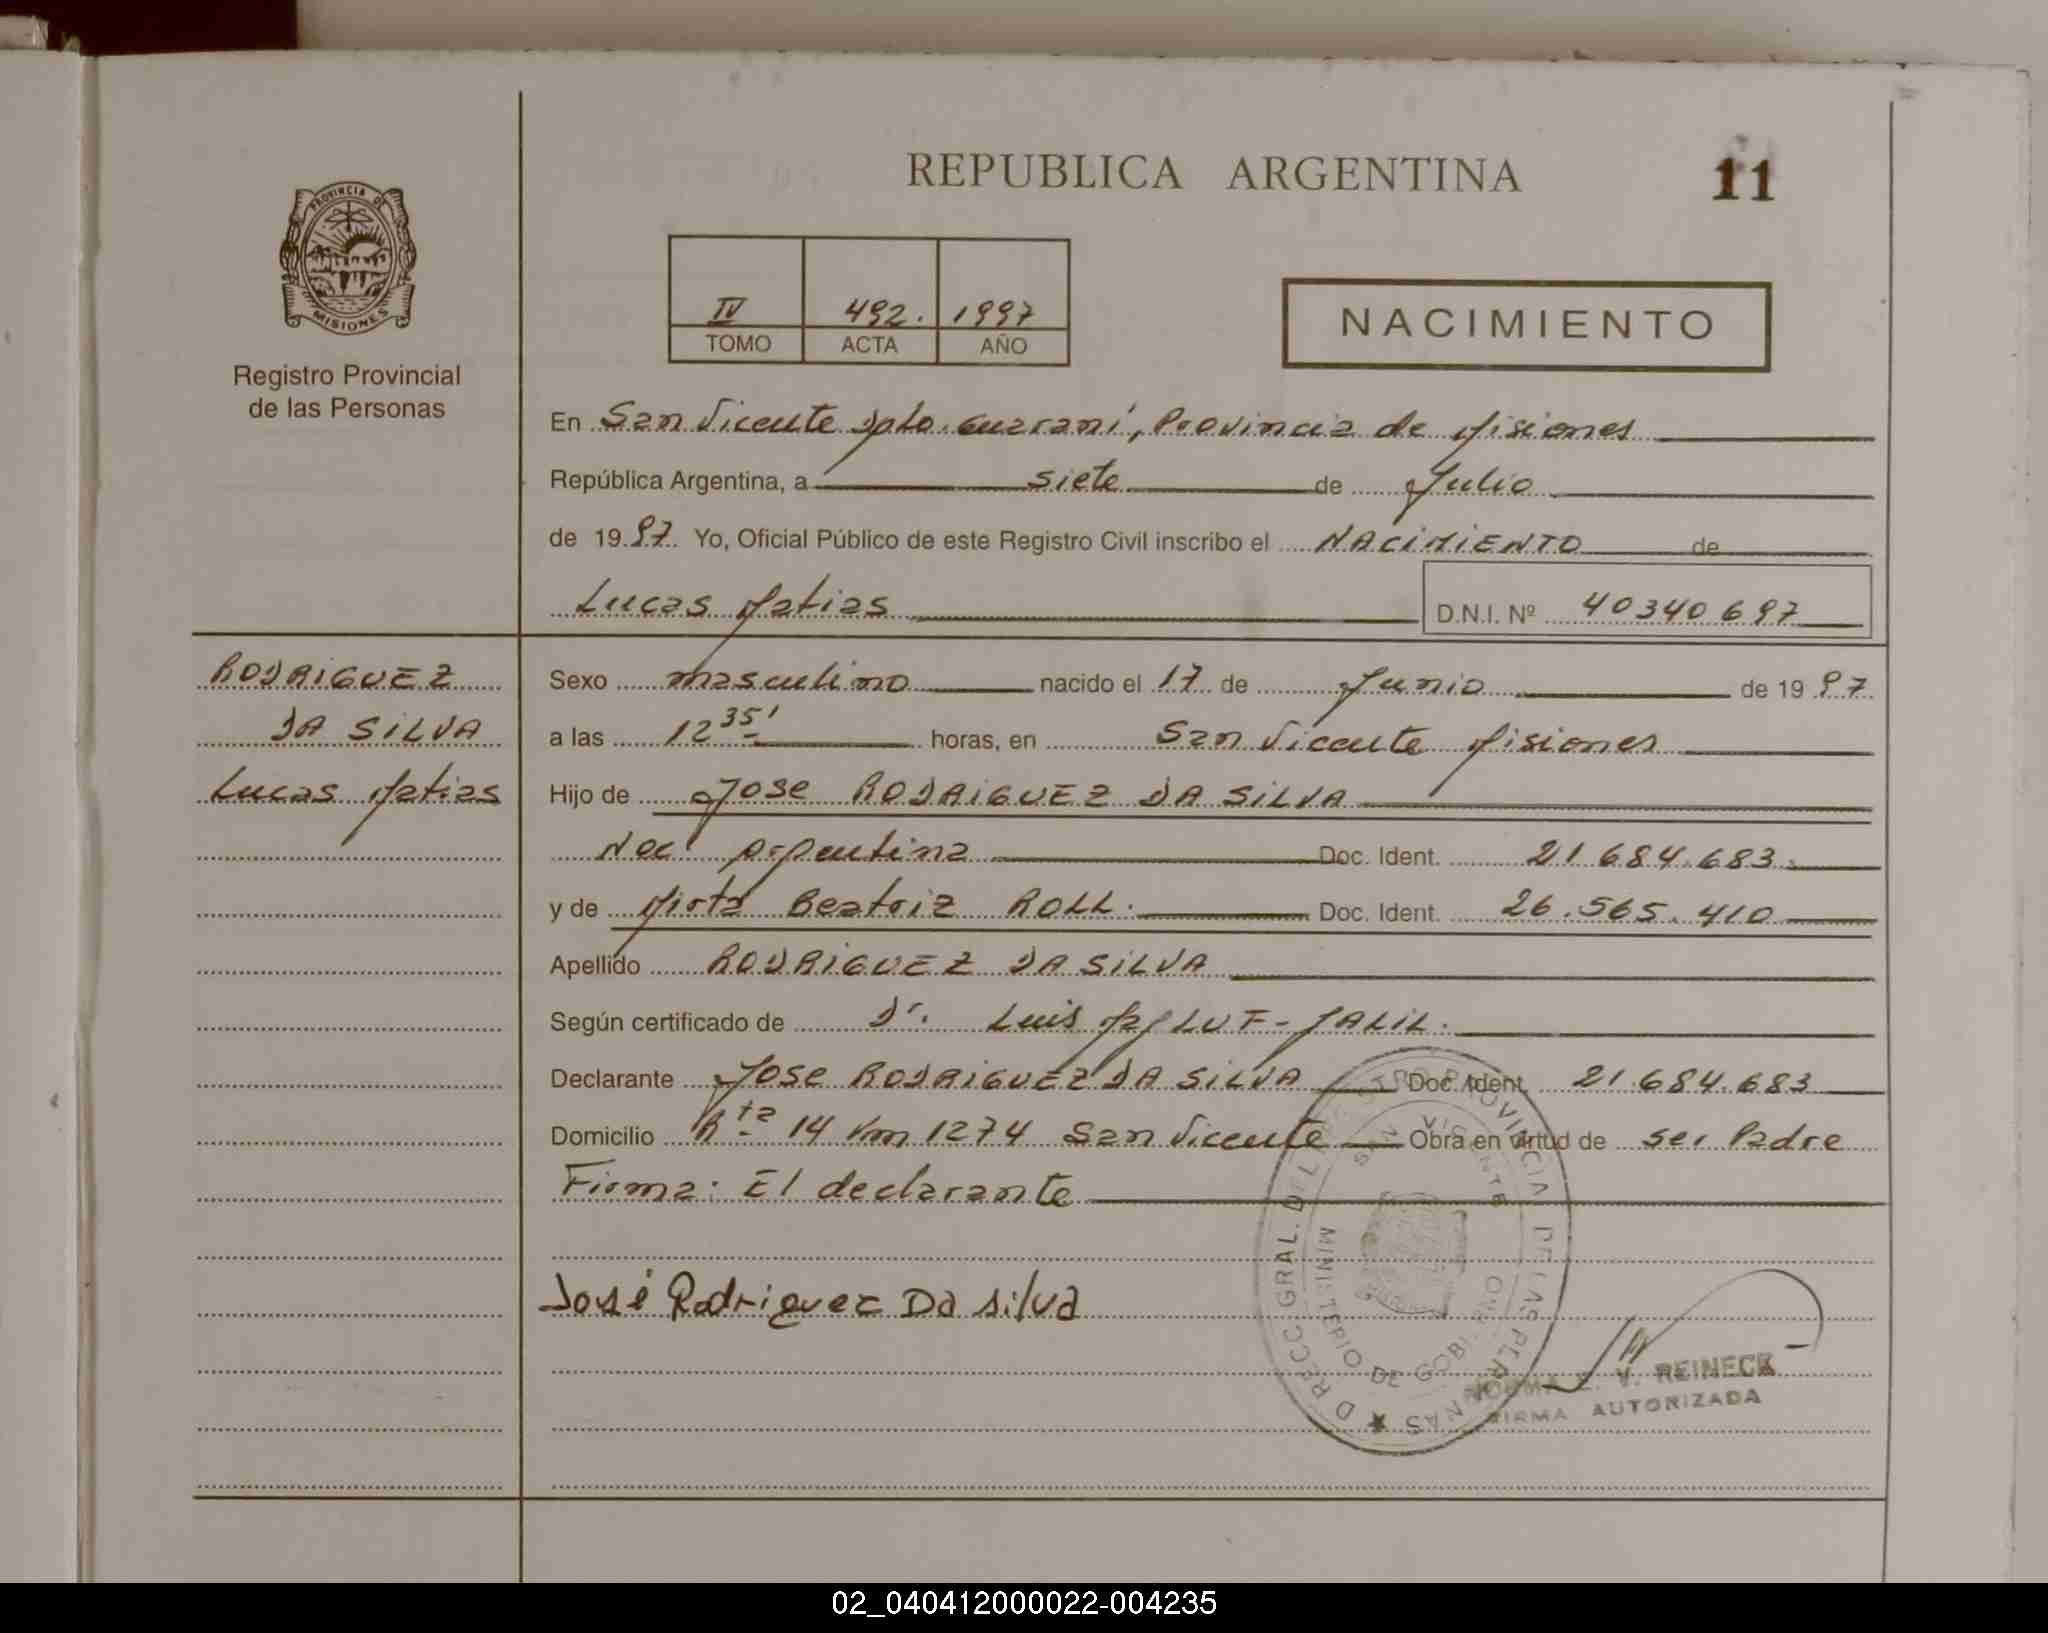 REPUBLICA ARGENTINA
11
PROVINCIA DE
MISIONES
Registro Provincial
de las Personas
IV 492. 1997
TOMO ACTA AÑO
NACIMIENTO
En San Vicente Dpto. Guaraní, Provincia de Misiones
República Argentina, a siete de Julio
de 1997 Yo, Oficial Público de este Registro Civil inscribo el NACIMIENTO de
Lucas Matias D.N.I. Nº 40340697
RODRIGUEZ
DA SILVA
Lucas Matias
Sexo masculino nacido el 17 de Junio de 1997
a las 12 35' horas, en San Vicente Misiones
Hijo de Jose RODRIGUEZ DA SILVA
Nac. Argentina Doc. Ident. 21.684.683.
y de Mirta Beatriz ROLL. Doc. Ident. 26.565.410
Apellido RODRIGUEZ DA SILVA
Según certificado de Dr. Luis MaLUF-JALIL.
Declarante Jose RODRIGUEZ DA SILVA Doc. Ident. 21.684.683
Domicilio Rta 14 Km 1274 San Vicente Obra en virtud de ser Padre
Firma: El declarante
José Rodriguez Da silva
DIRECC. GRAL. DEL REGISTRO PROVINCIAL DE LAS PERSONAS
SAN VICENTE
MINISTERIO DE GOBIERNO
NORMA E. V. REINECK
FIRMA AUTORIZADA
02_040412000022-004235